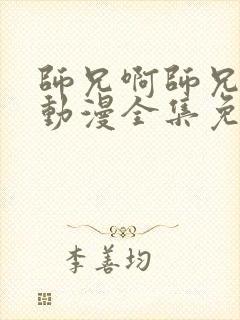 師兄啊師兄
動漫全集免
李善均